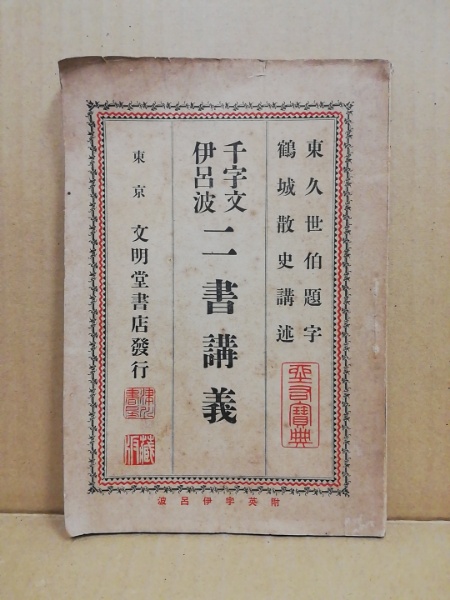 東久世伯題字
鶴城散史講述
千字文
伊呂波
二書講義
東京 文明堂書店發行
附英字伊呂波